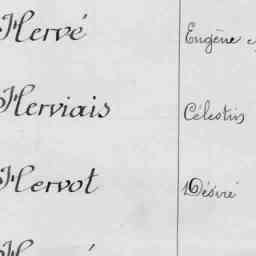 Hervé Eugène
Herviais Célestin
Hervot Désiré